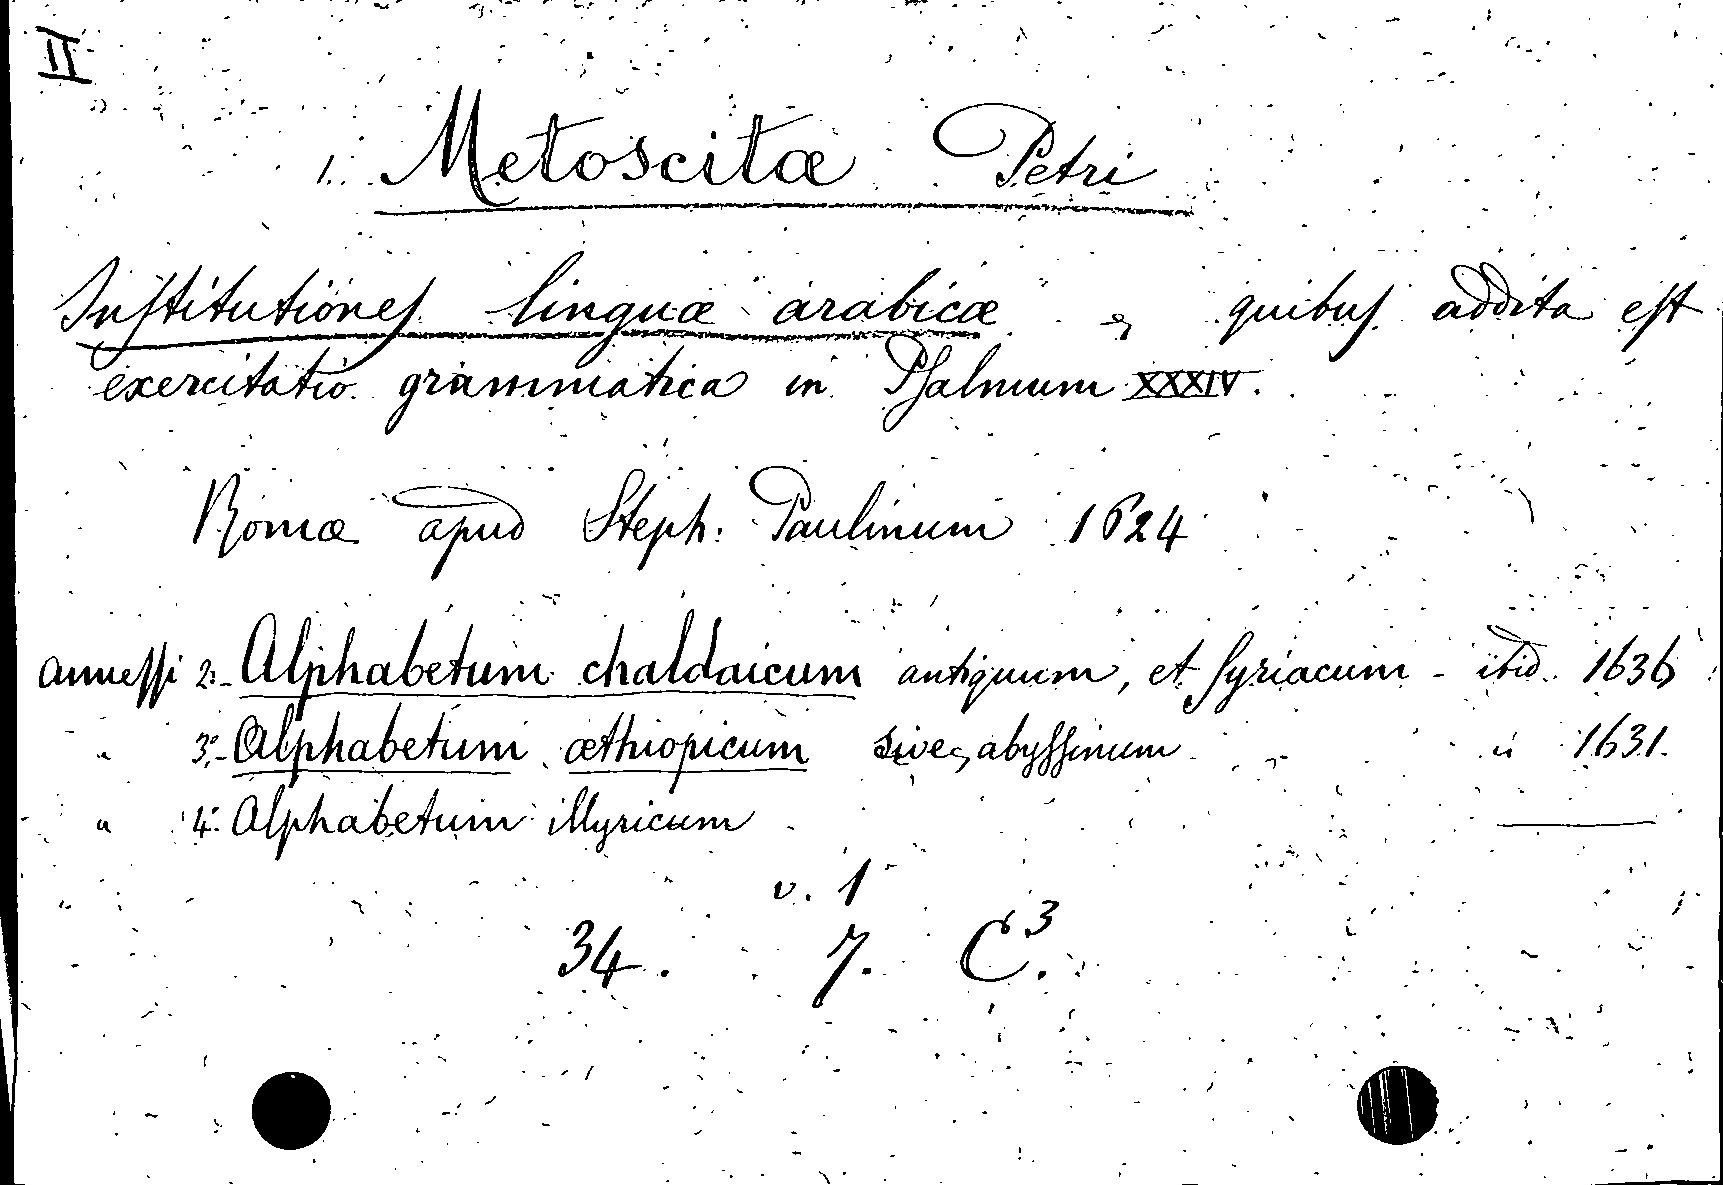 II
1. Metoscitæ Petri
Institutiones linguæ arabicæ, quibus addita est
exercitatio grammatica in Psalmum XXXIV.
Romæ apud Steph. Paulinum 1624
annessi 2.- Alphabetum chaldaicum antiquum, et syriacum - ibid. 1636
" 3.- Alphabetum æthiopicum sive, abyssinum " 1631.
" 4. Alphabetum illyricum
v. 1
34. 7. C3.